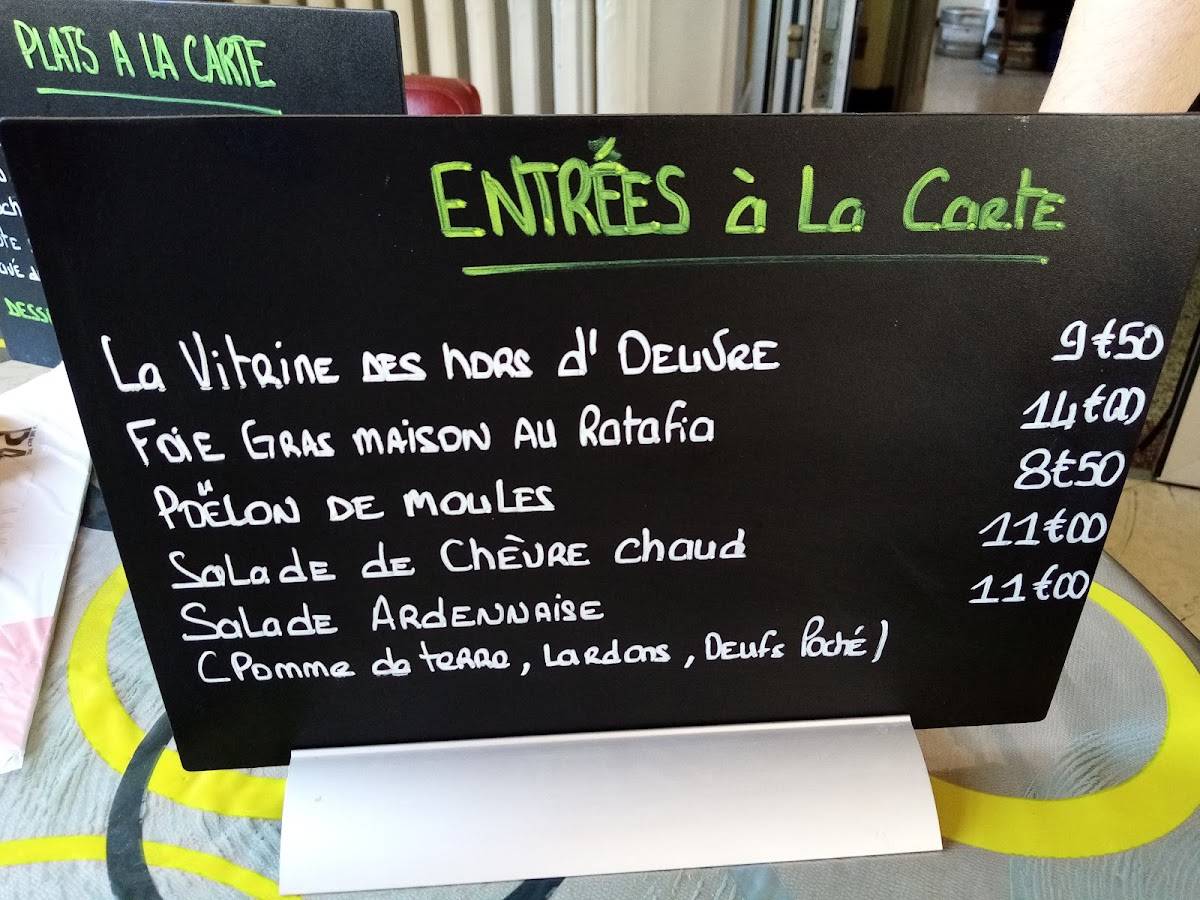 PLATS A LA CARTE
DESS
ENTRÉES à La Carte
La Vitrine des hors d'Oeuvre 9€50
Foie Gras maison au Ratafia 14€00
Poëlon de moules 8€50
Salade de Chèvre chaud 11€00
Salade Ardennaise 11€00
(Pomme de terre, Lardons, Oeufs Poché)